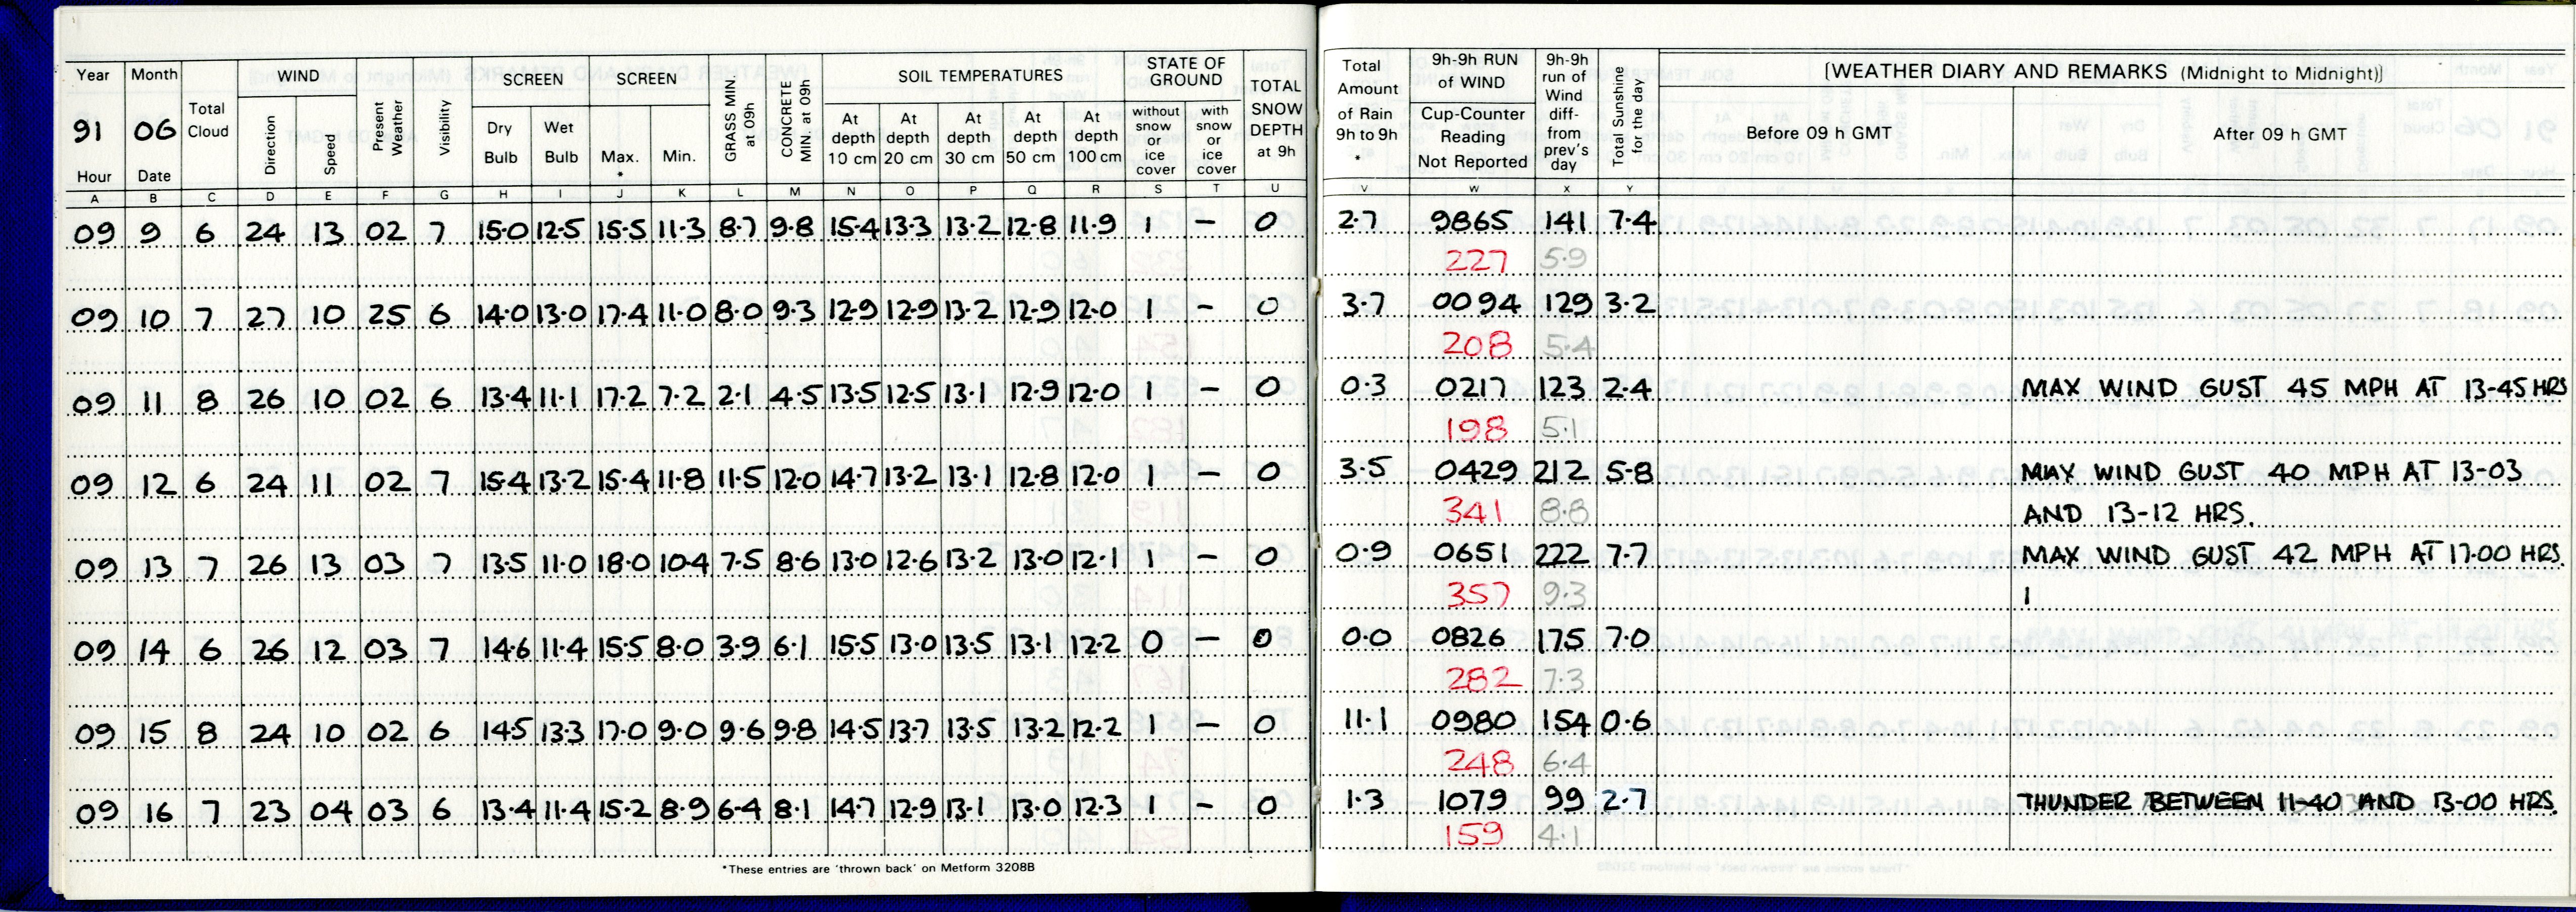 Year Month WIND SCREEN SCREEN SOIL TEMPERATURES STATE OF GROUND
91 06 Total Cloud Direction Speed Present Weather Visibility Dry Bulb Wet Bulb Max. * Min. GRASS MIN at 09h CONCRETE MIN at 09h At depth 10 cm At depth 20 cm At depth 30 cm At depth 50 cm At depth 100 cm without snow or ice cover with snow or ice cover TOTAL SNOW DEPTH at 9h
Hour Date
A B C D E F G H I J K L M N O P Q R S T U
09 9 6 24 13 02 7 15.0 12.5 15.5 11.3 8.7 9.8 15.4 13.3 13.2 12.8 11.9 1 – 0
09 10 7 27 10 25 6 14.0 13.0 17.4 11.0 8.0 9.3 12.9 12.9 13.2 12.9 12.0 1 – 0
09 11 8 26 10 02 6 13.4 11.1 17.2 7.2 2.1 4.5 13.5 12.5 13.1 12.9 12.0 1 – 0
09 12 6 24 11 02 7 15.4 13.2 15.4 11.8 11.5 12.0 14.7 13.2 13.1 12.8 12.0 1 – 0
09 13 7 26 13 03 7 13.5 11.0 18.0 10.4 7.5 8.6 13.0 12.6 13.2 13.0 12.1 1 – 0
09 14 6 26 12 03 7 14.6 11.4 15.5 8.0 3.9 6.1 15.5 13.0 13.5 13.1 12.2 0 – 0
09 15 8 24 10 02 6 14.5 13.3 17.0 9.0 9.6 9.8 14.5 13.7 13.5 13.2 12.2 1 – 0
09 16 7 23 04 03 6 13.4 11.4 15.2 8.9 6.4 8.1 14.7 12.9 13.1 13.0 12.3 1 – 0
*These entries are 'thrown back' on Metform 3208B
Total Amount of Rain 9h to 9h * 9h-9h RUN of WIND Cup-Counter Reading Not Reported 9h-9h run of Wind diff- from prev's day Total Sunshine for the day [WEATHER DIARY AND REMARKS (Midnight to Midnight)]
Before 09 h GMT After 09 h GMT
V W X Y
2.7 9865 141 7.4
227 5.9
3.7 0094 129 3.2
208 5.4
0.3 0217 123 2.4 MAX WIND GUST 45 MPH AT 13-45 HRS
198 5.1
3.5 0429 212 5.8 MAX WIND GUST 40 MPH AT 13-03
341 8.8 AND 13-12 HRS.
0.9 0651 222 7.7 MAX WIND GUST 42 MPH AT 17.00 HRS.
357 9.3 1
0.0 0826 175 7.0
282 7.3
11.1 0980 154 0.6
248 6.4
1.3 1079 99 2.7 THUNDER BETWEEN 11-40 AND 13-00 HRS.
159 4.1